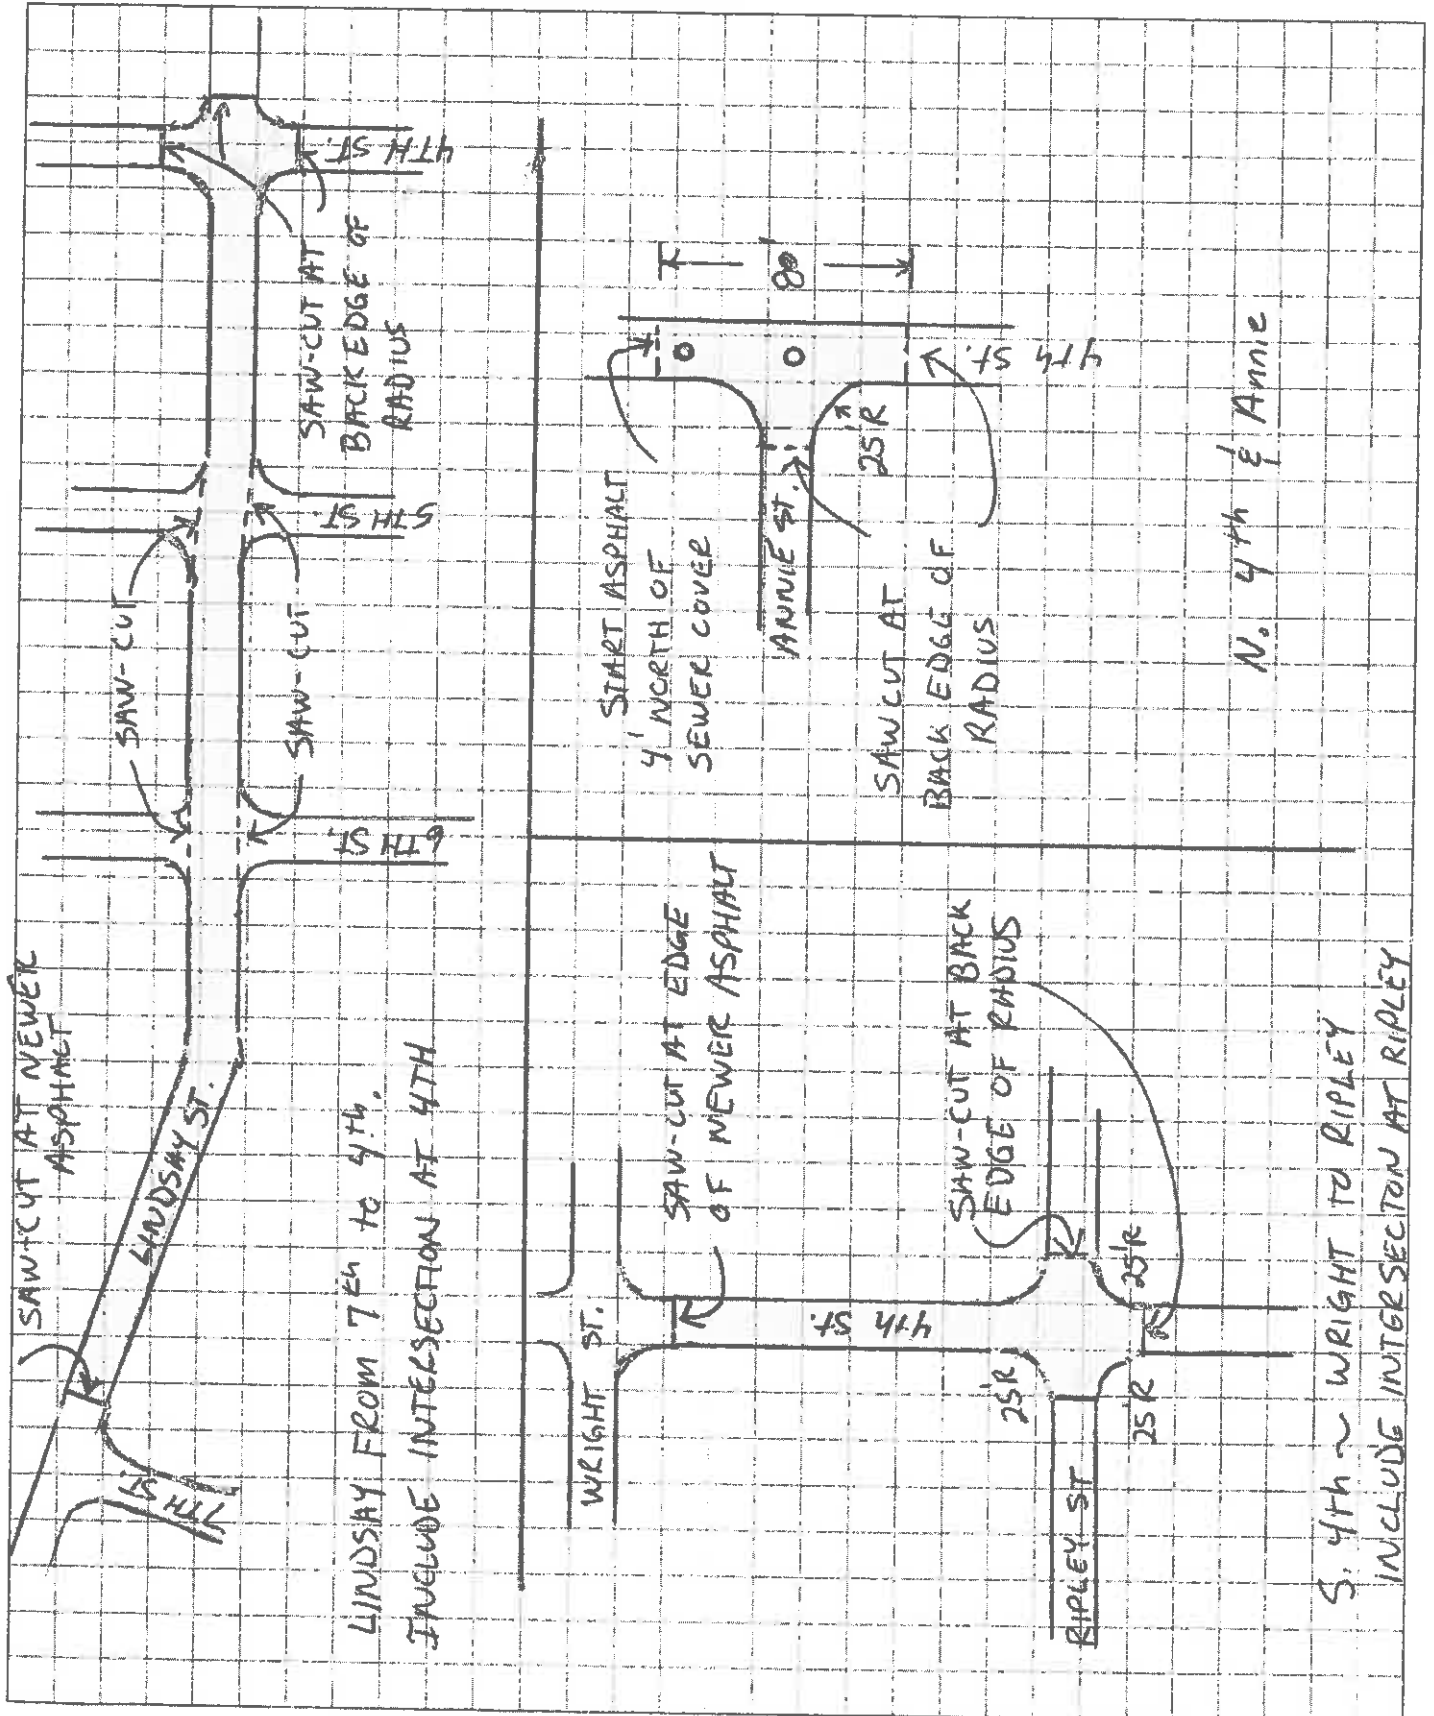 SAW-CUT AT NEWER
ASPHALT
LINDSAY ST.
7TH ST
SAW-CUT
SAW-CUT
6TH ST.
5TH ST.
4TH ST.
SAW-CUT AT
BACK EDGE OF
RADIUS
LINDSAY FROM 7th to 4th.
INCLUDE INTERSECTION AT 4TH
WRIGHT ST.
SAW-CUT AT EDGE
OF NEWER ASPHALT
4th ST.
SAW-CUT AT BACK
EDGE OF RADIUS
25'R
25'R
25'R
RIPLEY ST
S. 4th ~ WRIGHT TO RIPLEY
INCLUDE INTERSECTON AT RIPLEY
START ASPHALT
4' NORTH OF
SEWER COVER
ANNIE ST.
25'R
80'
4th ST.
SAWCUT AT
BACK EDGE OF
RADIUS
N. 4th & Annie